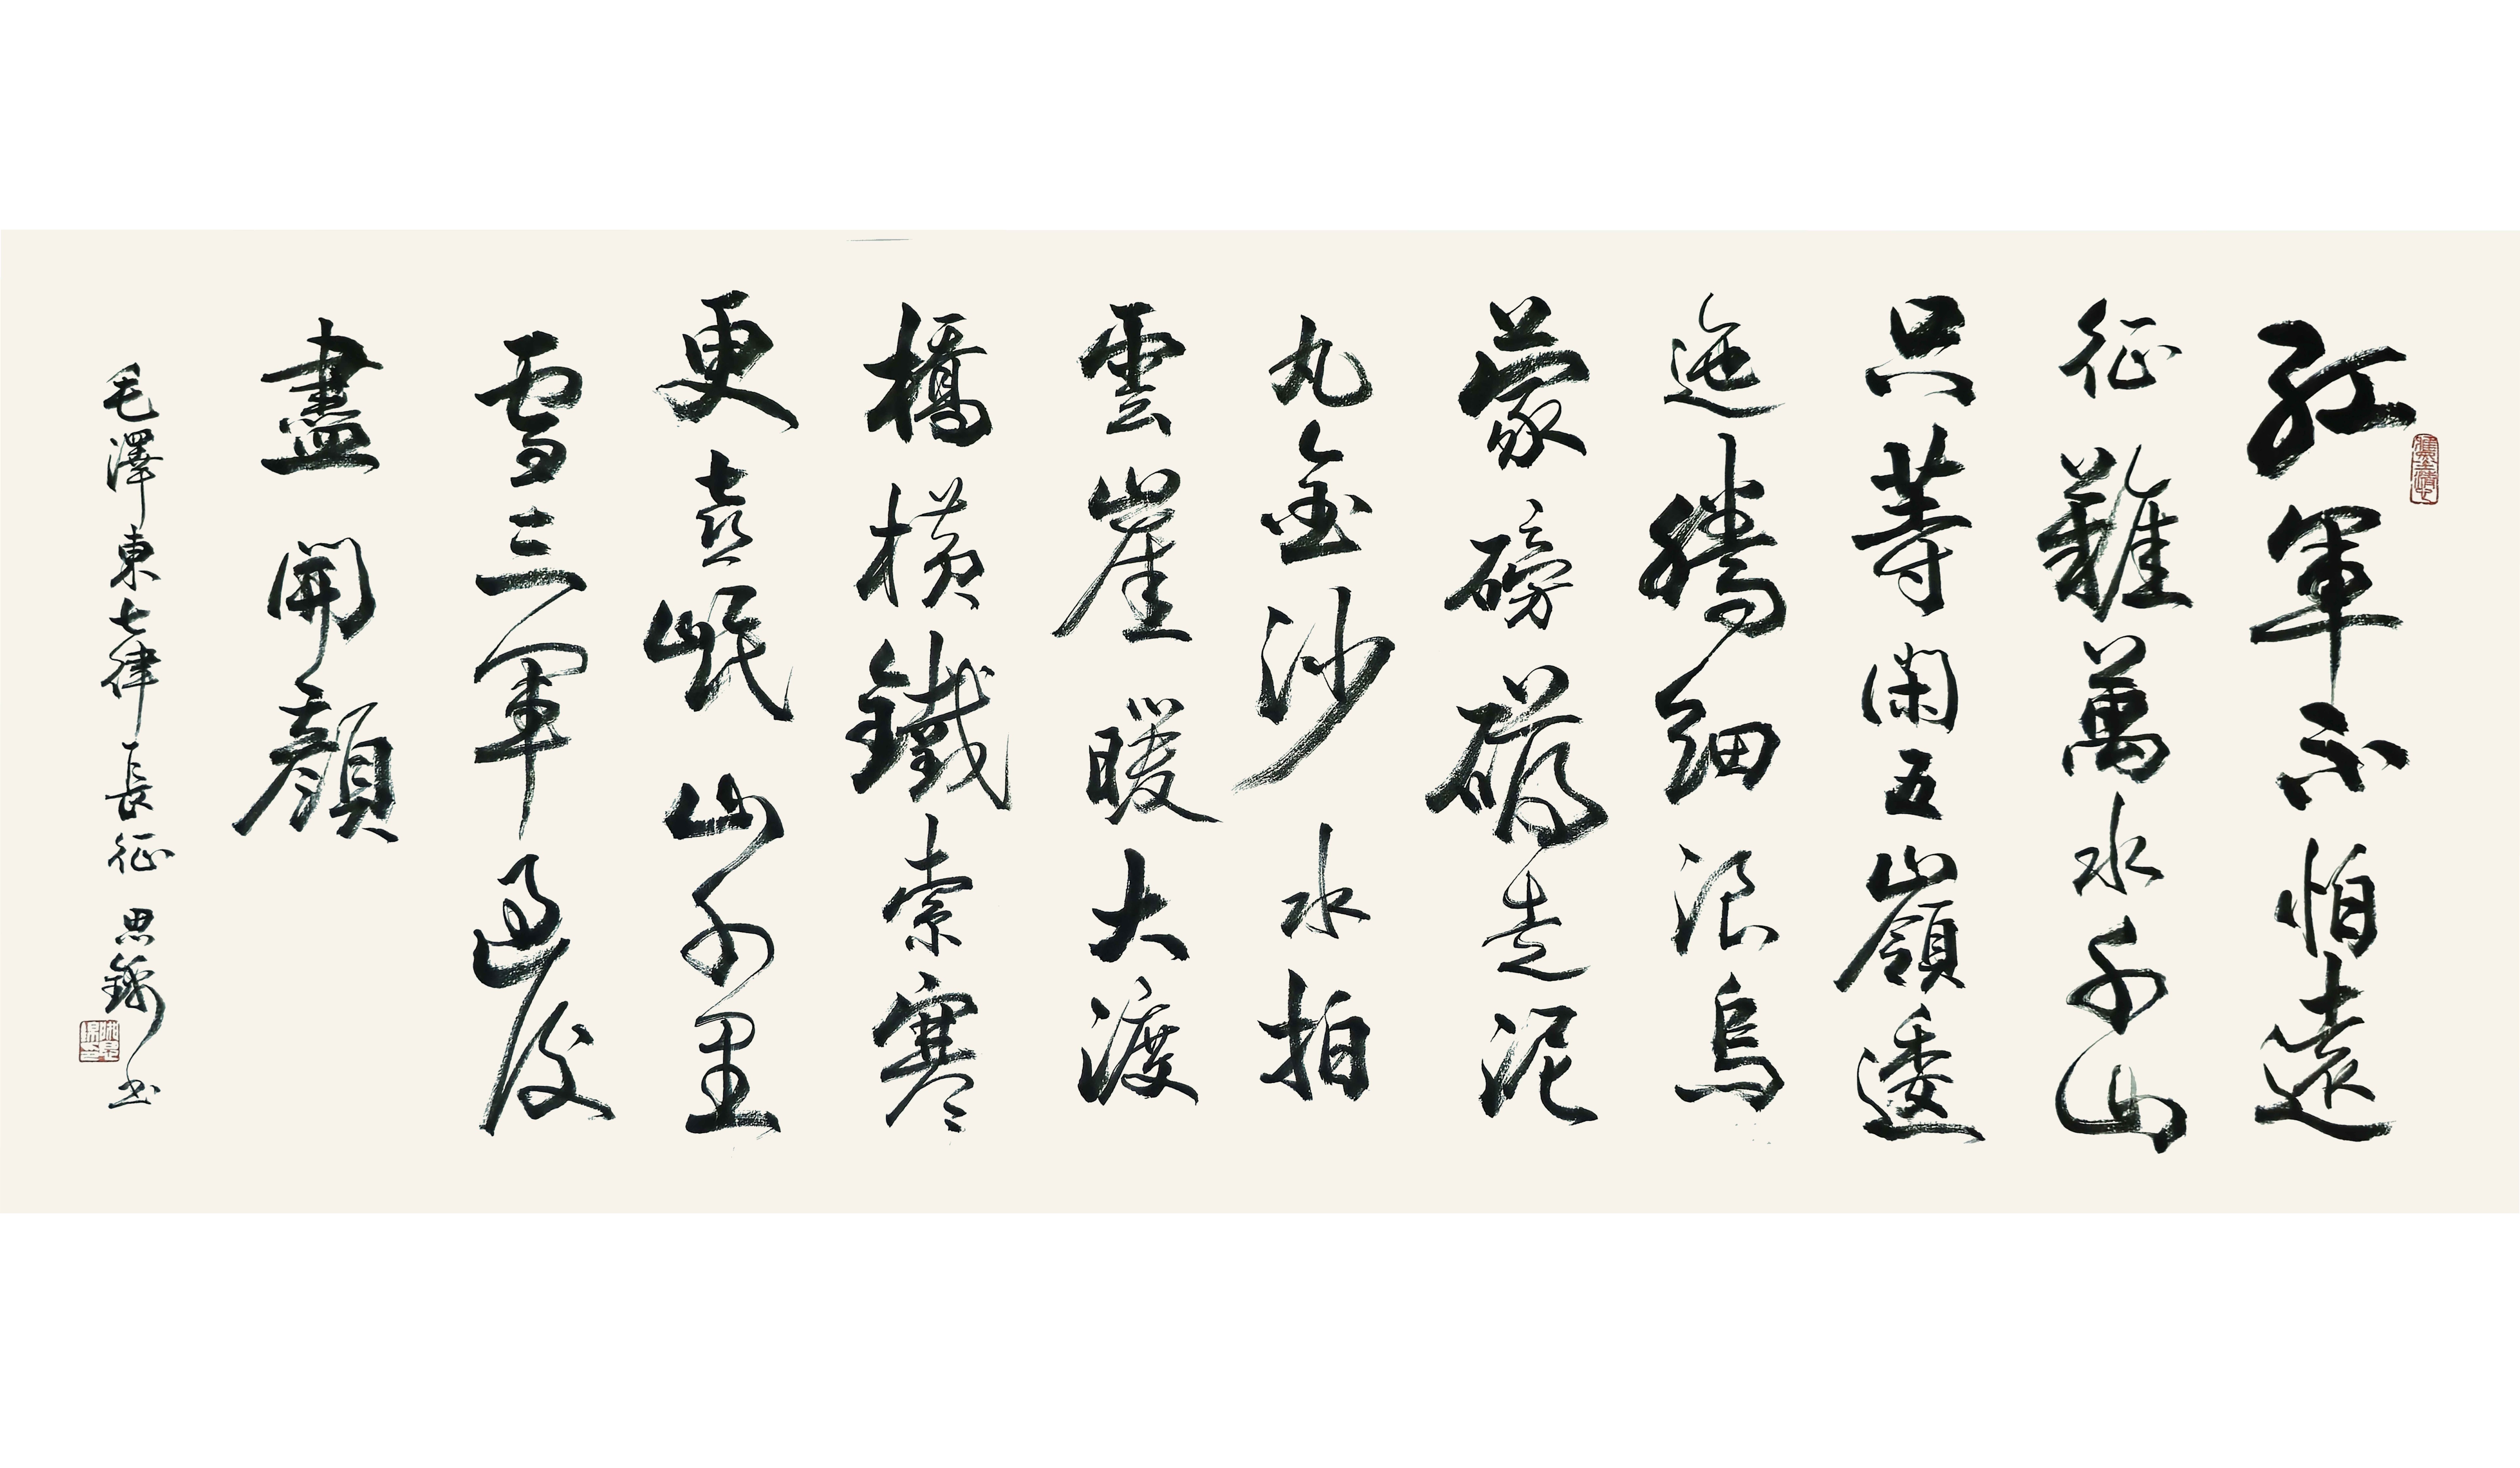 紅軍不怕遠
征難萬水千山
只等閑五嶺逶
迤騰細浪烏
蒙磅礴走泥
丸金沙水拍
雲崖暖大渡
橋橫鐵索寒
更喜岷山千里
雪三軍過後
盡開顏
毛澤東七律長征 思錦書